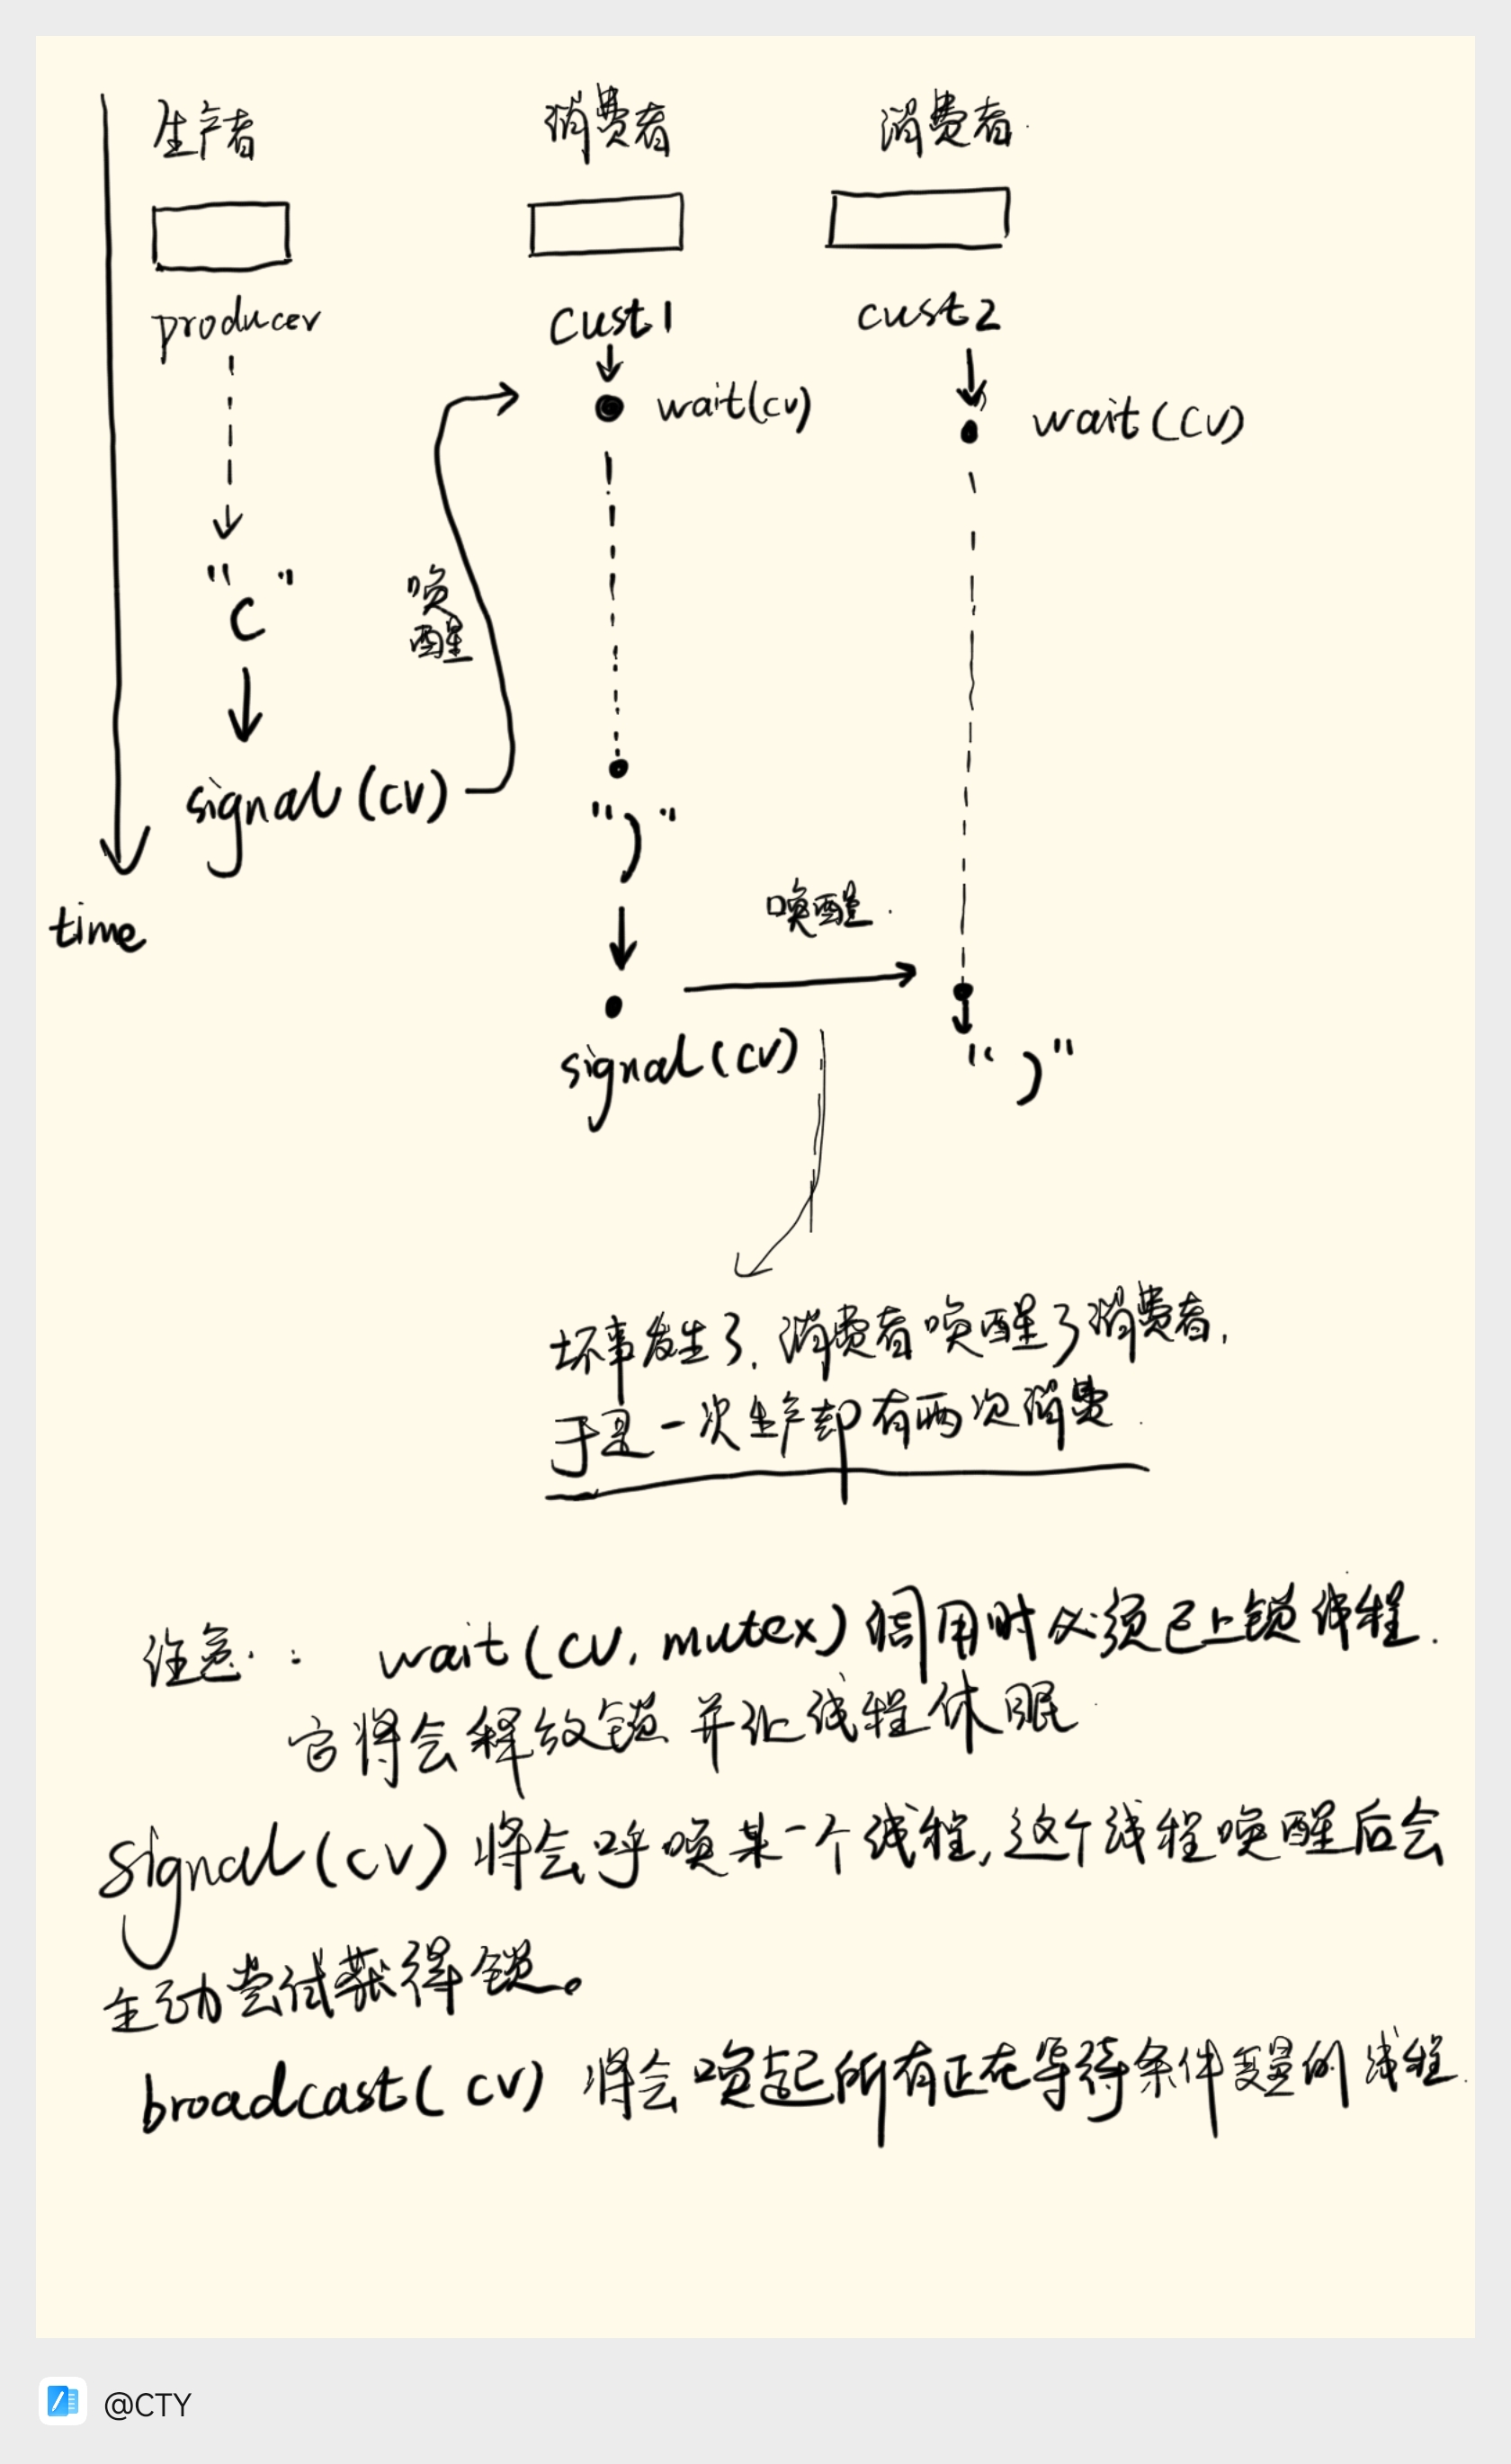 生产者 消费者 消费者
producer cust1 cust2
wait(cv) wait(cv)
"("
唤醒
signal(cv)
")"
唤醒
time
signal(cv)
")"
坏事发生了,消费者唤醒了消费者,
于是一次生产却有两次消费
注意: wait(cv, mutex)调用时必须已上锁线程.
它将会释放锁 并让线程休眠
signal(cv)将会呼唤某一个线程,这个线程唤醒后会
主动尝试获得锁。
broadcast(cv) 将会唤起所有正在等待条件变量的线程.
@CTY